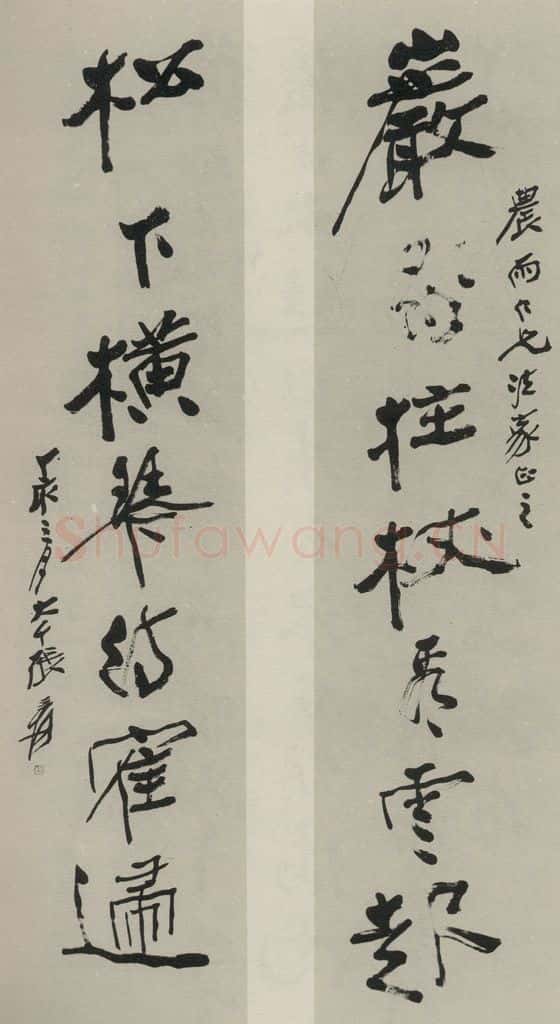 巖拄杖看雲起
農雨仁兄法家正之
松下橫琴待隺歸
丁亥三月大千張爰
Shufawang.CN